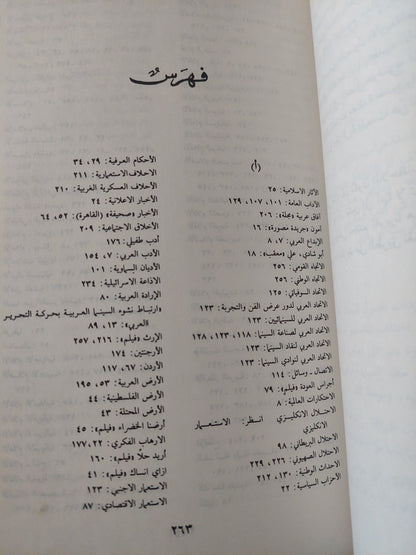 فهرس
(أ)
الآثار الاسلامية: ٢٥
الآداب العامة: ١٠١، ١٠٧، ١٢٩
آفاق عربية «مجلة»: ٢٠٦
آمون «جريدة مصورة»: ١٦
الإبداع العربي: ٧، ٨
أبو شادي، علي «معقب»: ١٨
الاتجاه القومي: ٢٥٦
الاتجاه الوطني: ٢٥٦
الاتحاد السوفياتي: ١٢٥
الاتحاد العربي لدور عرض الفن والتجربة: ١٢٣
الاتحاد العربي للسينمائيين: ١٢٣
الاتحاد العربي لصناعة السينما: ١١٨، ١٢٣، ١٢٨
الاتحاد العربي لنقاد السينما: ١٢٣
الاتحاد العربي لنوادي السينما: ١٢٣
الاتصال ـ وسائل: ١١٤
أجراس العودة «فيلم»: ٧٩
الاحتكارات العالمية: ٨
الاحتلال الانكليزي انظر: الاستعمار
الانكليزي
الاحتلال البريطاني: ٩٨
الاحتلال الصهيوني: ٢٢٦، ٢٢٩
الاحداث الوطنية: ١٣٠، ٢١٢
الأحزاب السياسية: ٢٢
الأحكام العرفية: ٢٩، ٣٤
الاحلاف الاستعمارية: ٢١١
الأحلاف العسكرية الغربية: ٢١٠
الأخبار الاعلانية: ٢٤
الأخبار «صحيفة» (القاهرة): ٥٢، ٦٤
الأخلاق الاجتماعية: ٢٠٩
أدب طفيلي: ١٧٧
الأدب العربي: ٧، ١٥٤
الأديان السماوية: ١٠١
الاذاعة الاسرائيلية: ٢٣٤
الإرادة العربية: ٨٠
«ارتباط نشوء السينما العربية بحركة التحرير
العربي»: ١٣، ٨٩
الإرث «فيلم»: ٢١٦، ٢٥٧
الأرجنتين: ١٧٤
الأردن: ٦٧، ١١٧
الأرض العربية: ٥٣، ١٩٥
الأرض الفلسطينية: ٤٤
الأرض المحتلة: ٤٣
أرضنا الخضراء «فيلم»: ٤٥
الارهاب الفكري: ٢٢، ١٧٧
أريد حلاً «فيلم»: ١٦٠
ازاي انساك «فيلم»: ٤١
الاستعمار الاجنبي: ١٢٣
الاستعمار الاقتصادي: ٨٧
٢٦٣